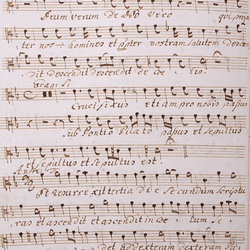 Deum verum de Deo vero qui pro
ter nos + homines et ppter nostram salutem Descen
dit descendit descendit de ce lis
adagio
Crucifixus etiam pro nobis
sub Pontio Pilato passus et sepultus
et sepultus et sepultus est.
Et resurrexit tertia die Secundum script
ras et ascendit et ascendit in celum se
dexteram dexteram